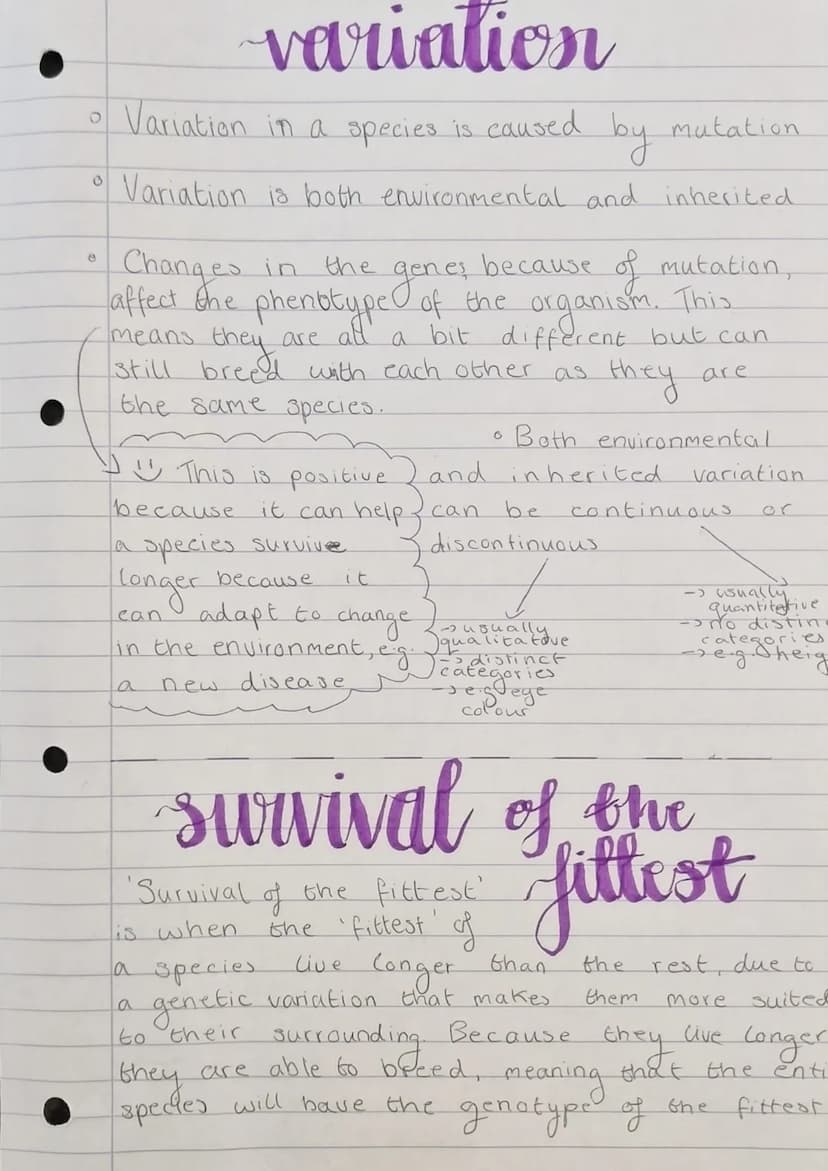 variation
◦ Variation in a species is caused by mutation
◦ Variation is both environmental and inherited
◦ Changes in the genes, because of mutation,
affect the phenotype of the organism. This
means they are all a bit different but can
still breed with each other as they are
the same species.
This is positive
because it can help
a species survive
longer because it
can adapt to change
in the environment, e.g.
a new disease
◦ Both environmental
and inherited variation
can be continuous or
discontinuous
-> usually
qualitative
-> distinct
categories
-> e.g. eye
colour
-> usually
quantitative
-> no distin
categories
-> e.g. heig
survival of the
fittest
'Survival of the fittest'
is when the 'fittest' of
a species live longer than the rest, due to
a genetic variation that makes them more suited
to their surrounding. Because they live longer
they are able to breed, meaning that the enti
species will have the genotype of the fittest